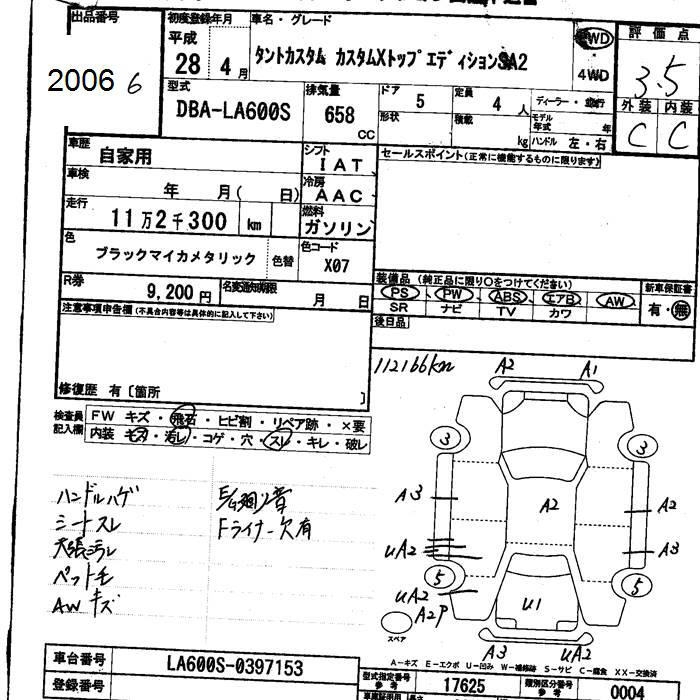 出品番号
2006 6
初度登録年月
平成
28年 4月
車名・グレード
タントカスタム カスタムXトップエディションSA2
2WD
4WD
評価点
3.5
外装 内装
C C
型式
DBA-LA600S
排気量
658
CC
ドア 5
定員 4人
形状
積載 kg
ディーラー・
モデル年式 年
ハンドル 左・右
車歴
自家用
シフト
IAT
セールスポイント(正常に機能するものに限ります)
車検
年 月( 日)
冷房
AAC
走行
11万2千300 km
燃料
ガソリン
色
ブラックマイカメタリック
色替
色コード
X07
R券
9,200円
名変通知期限
月 日
装備品 (純正品に限り○をつけてください)
PS PW ABS エアB AW
SR ナビ TV カワ
新車保証書
有・無
後日品
注意事項申告欄(不具合内容等は具体的に記入して下さい)
修復歴 有〔箇所 〕
112166km
検査員記入欄
FW キズ・飛石・ヒビ割・リペア跡・×要
内装 キズ・汚レ・コゲ・穴・スレ・キレ・破レ
ハンドルハゲ
シートスレ
天張汚レ
ペット毛
AWキズ
Fライナー欠有
A2 A1
3 3
A3 A2 A2
UA2 A3
5 5
UA2 U1
A2P
スペア
A3 UA2
A-キズ E-エクボ U-凹み W-補修跡 S-サビ C-腐食 XX-交換済
車台番号
LA600S-0397153
登録番号
型式指定番号
参考
17625
類別区分番号
参考
0004